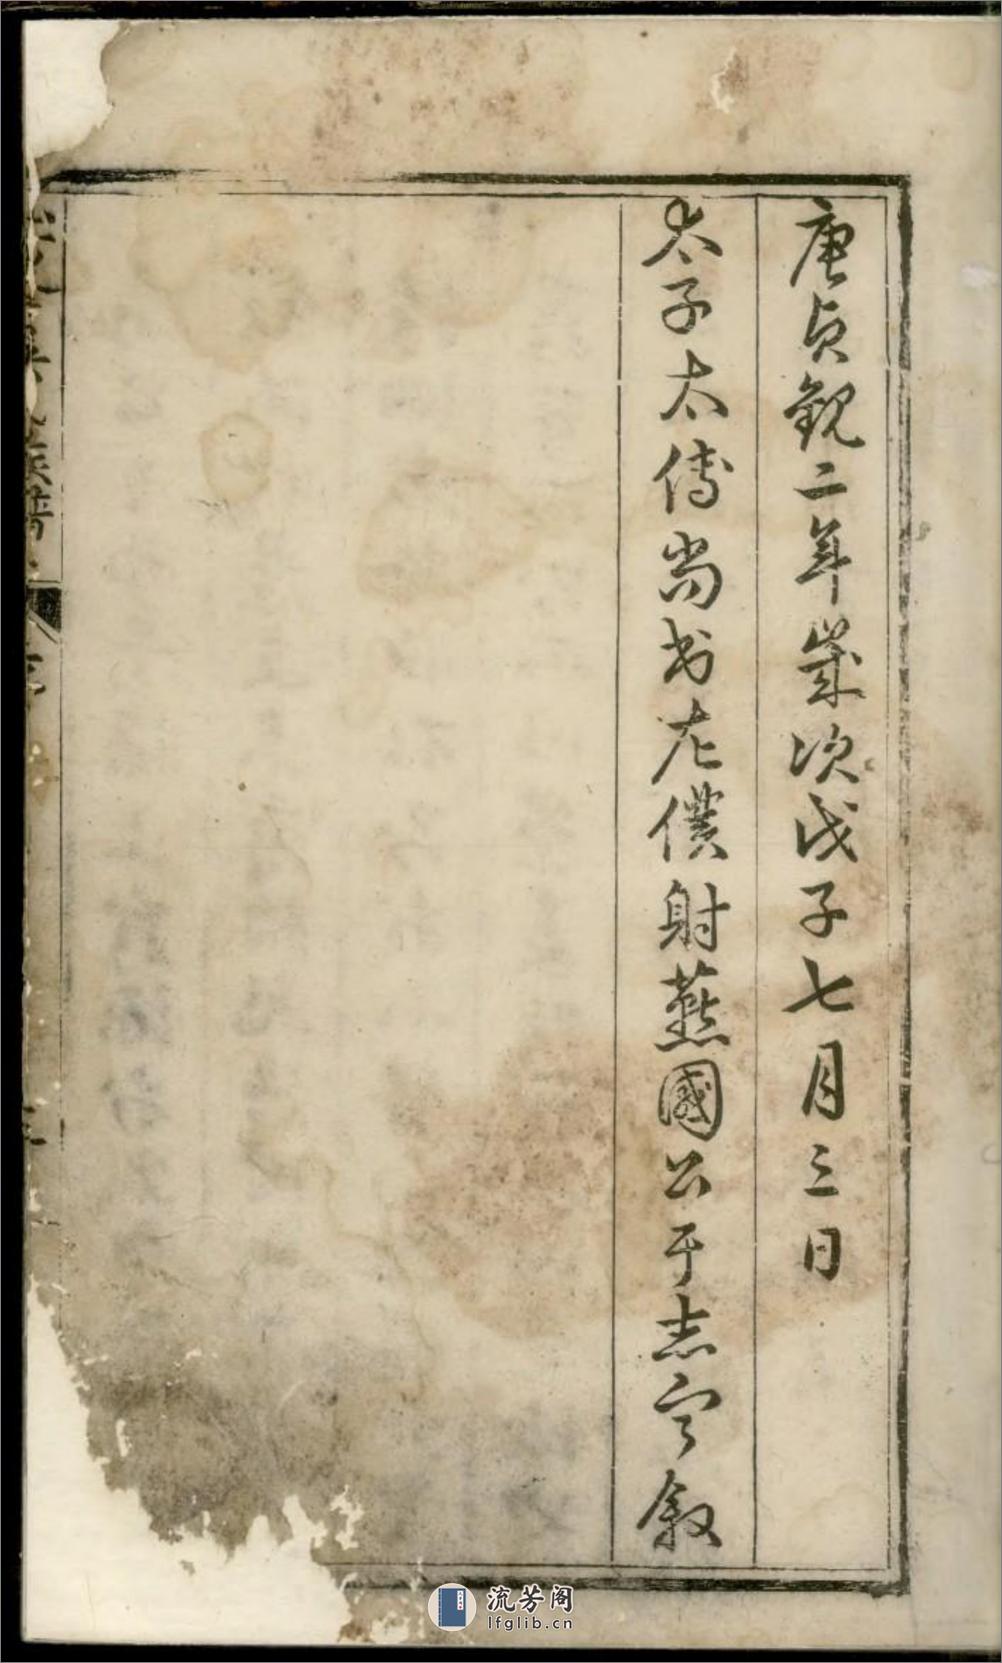 唐贞观二年岁次戊子七月三日
太子太傅尚书左僕射燕國公于志宁叙
族譜
流芳阁
lfglib.cn